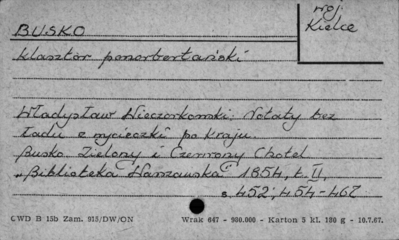 woj.
BUSKO
Kielce
klasztor ponorbertański
Władysław Wieczorkowski: Notaty bez
ładu z wycieczki po kraju.
Busko. Zielony i Czerwony Chotel
"Biblioteka Warszawska" 1854, t. II,
s. 452; 454-467
CWD B 15b Zam. 915/DW/ON Wrak 647 - 930.000 - Karton 5 kl. 180 g - 10.7.67.